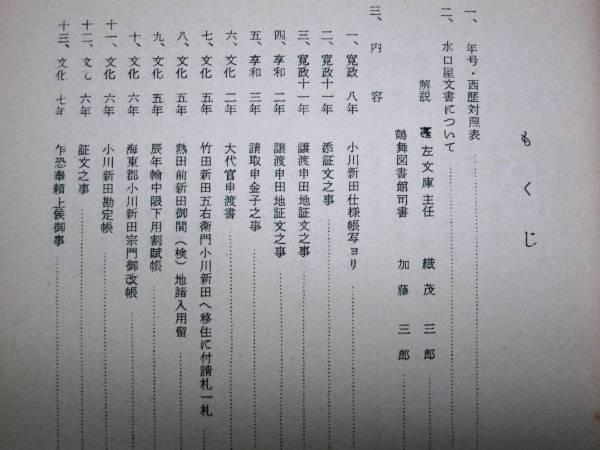 もくじ
一、年号・西歴対照表
二、水口屋文書について
解説 蓬左文庫主任 織茂三郎
鶴舞図書館司書 加藤三郎
三、内容
一、寛政 八年 小川新田仕様帳写ヨリ
二、寛政十一年 添証文之事
三、寛政十一年 譲渡申田地証文之事
四、享和 二年 譲渡申田地証文之事
五、享和 三年 請取申金子之事
六、文化 二年 大代官申渡書
七、文化 五年 竹田新田五右衛門小川新田へ移住に付請札一札
八、文化 五年 熱田前新田御間(検)地諸入用留
九、文化 五年 辰年輪中限下用割賦帳
十、文化 六年 海東郡小川新田宗門御改帳
十一、文化 六年 小川新田勘定帳
十二、文化 六年 証文之事
十三、文化 七年 乍恐奉頼上候御事